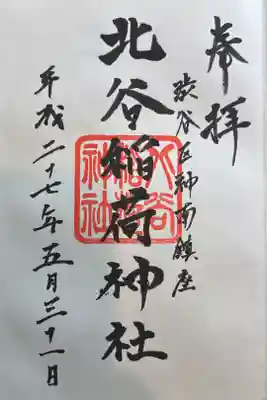 奉拝
渋谷区神南鎮座
北谷稲荷神社
平成二十七年五月三十一日